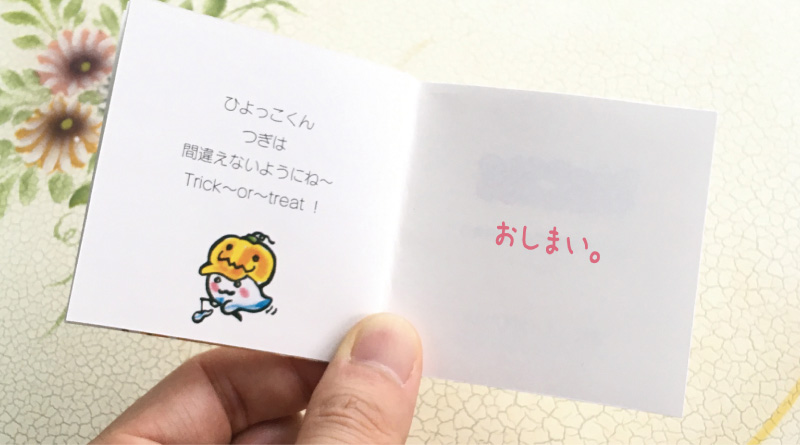 ひよっこくん
つぎは
間違えないようにね～
Trick～or～treat！
おしまい。